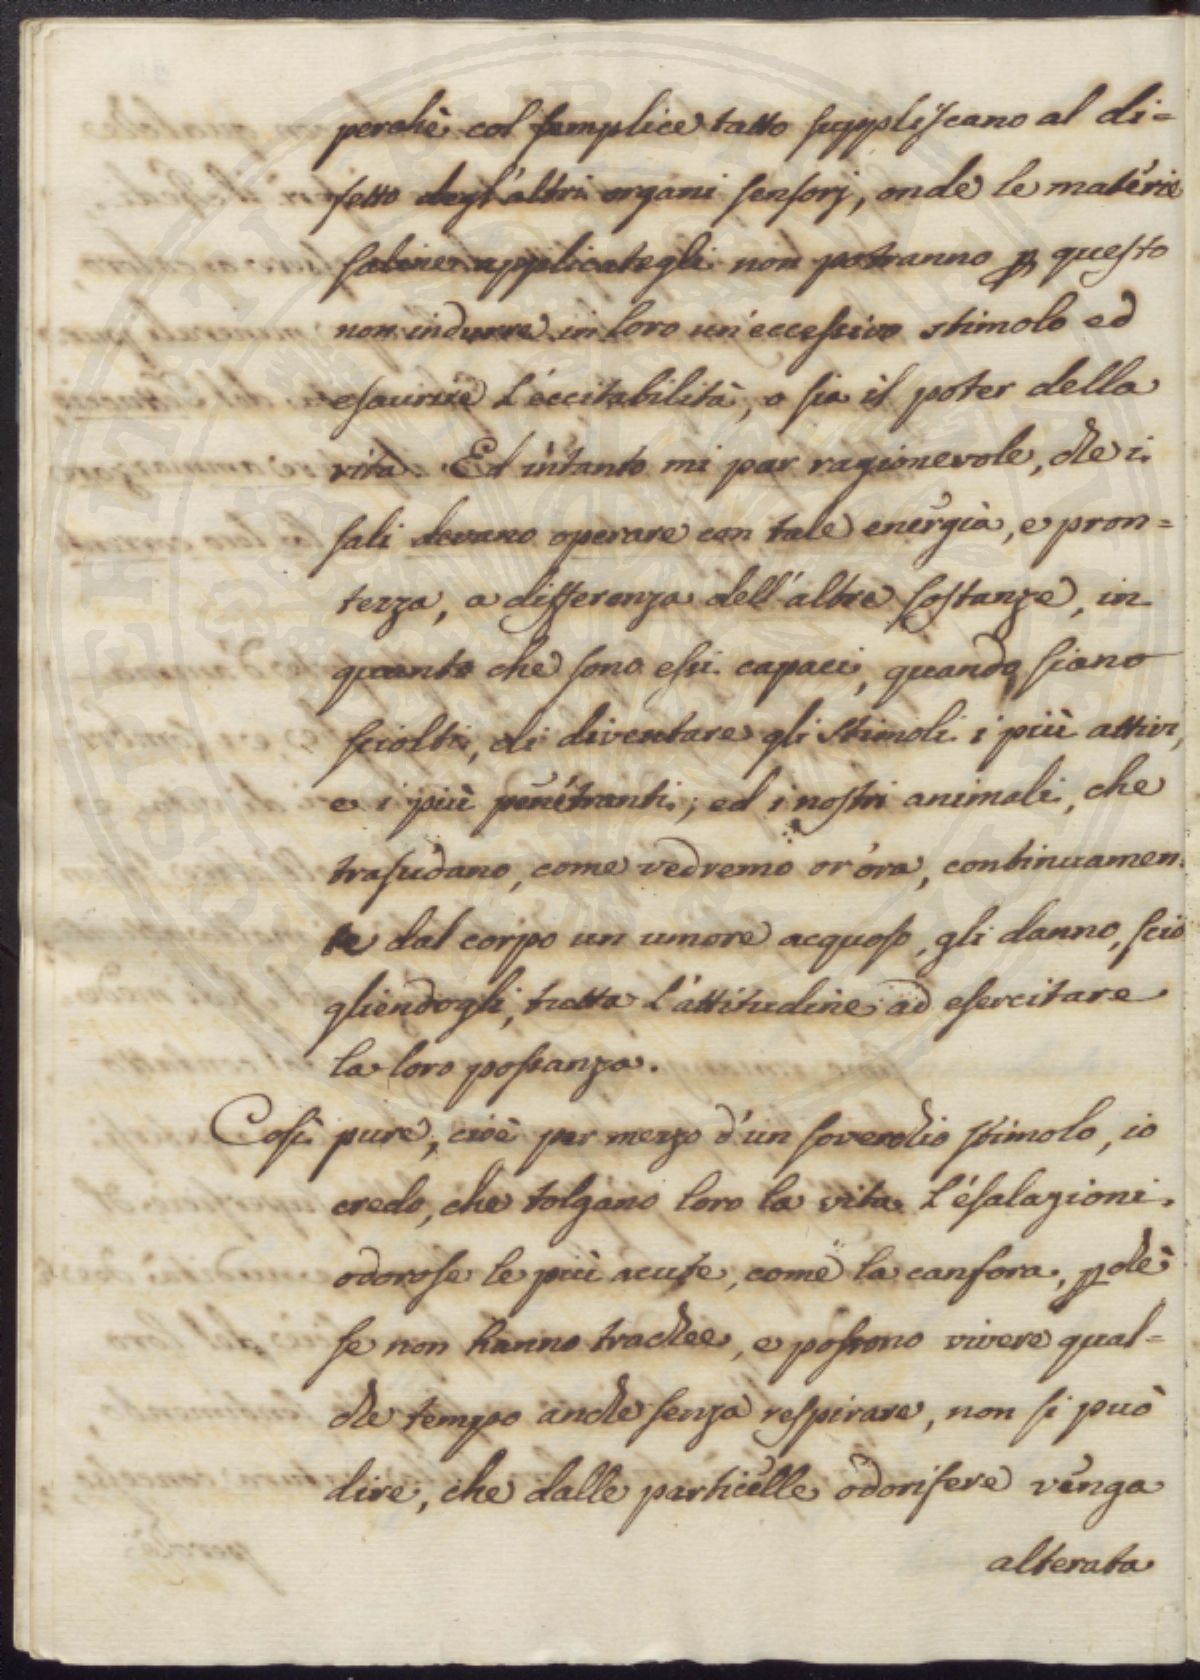 perchè col semplice tatto suppliscano al di=
fetto degl'altri organi sensorj, onde le materie
saline applicategli non potranno p questo
non indurre in loro un'eccessivo stimolo ed
esaurire l'eccitabilità, o sia il poter della
vita. Ed intanto mi par ragionevole, che i
sali devano operare con tale energìa, e pron=
tezza, a differenza dell'altre sostanze, in
quanto che sono essi capaci, quando siano
sciolti, di diventare gli stimoli i più attivi,
e i più penetranti; ed i nostri animali, che
trasudano, come vedremo or'ora, continuamen=
te dal corpo un umore acquoso, gli danno, scio
gliendogli, tutta l'attitudine ad esercitare
la loro possanza.
Così pure, cioè per mezzo d'un soverchio stimolo, io
credo, che tolgano loro la vita l'esalazioni
odorose le più acute, come la canfora, pchè
se non hanno trachee, e possono vivere qual=
che tempo anche senza respirare, non si può
dire, che dalle particelle odorifere venga
alterata